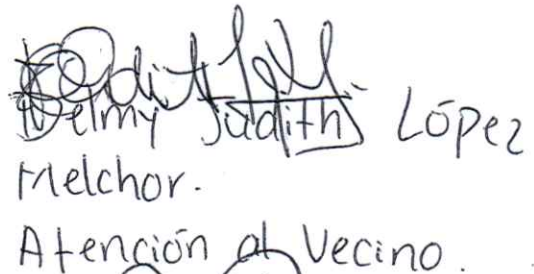 Delmy Judith López
Melchor.
Atención al Vecino.